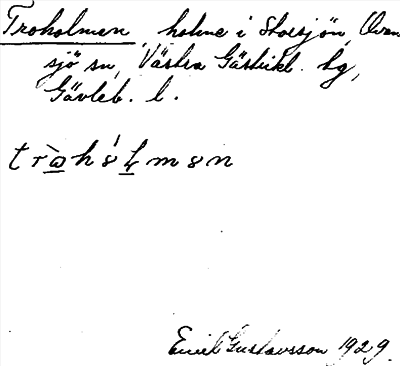 Troholmen, holme i Storsjön, Ovan
sjö sn, Västra Gästrikl. hg,
Gävleb. l.
Emil Gustavsson 1929.